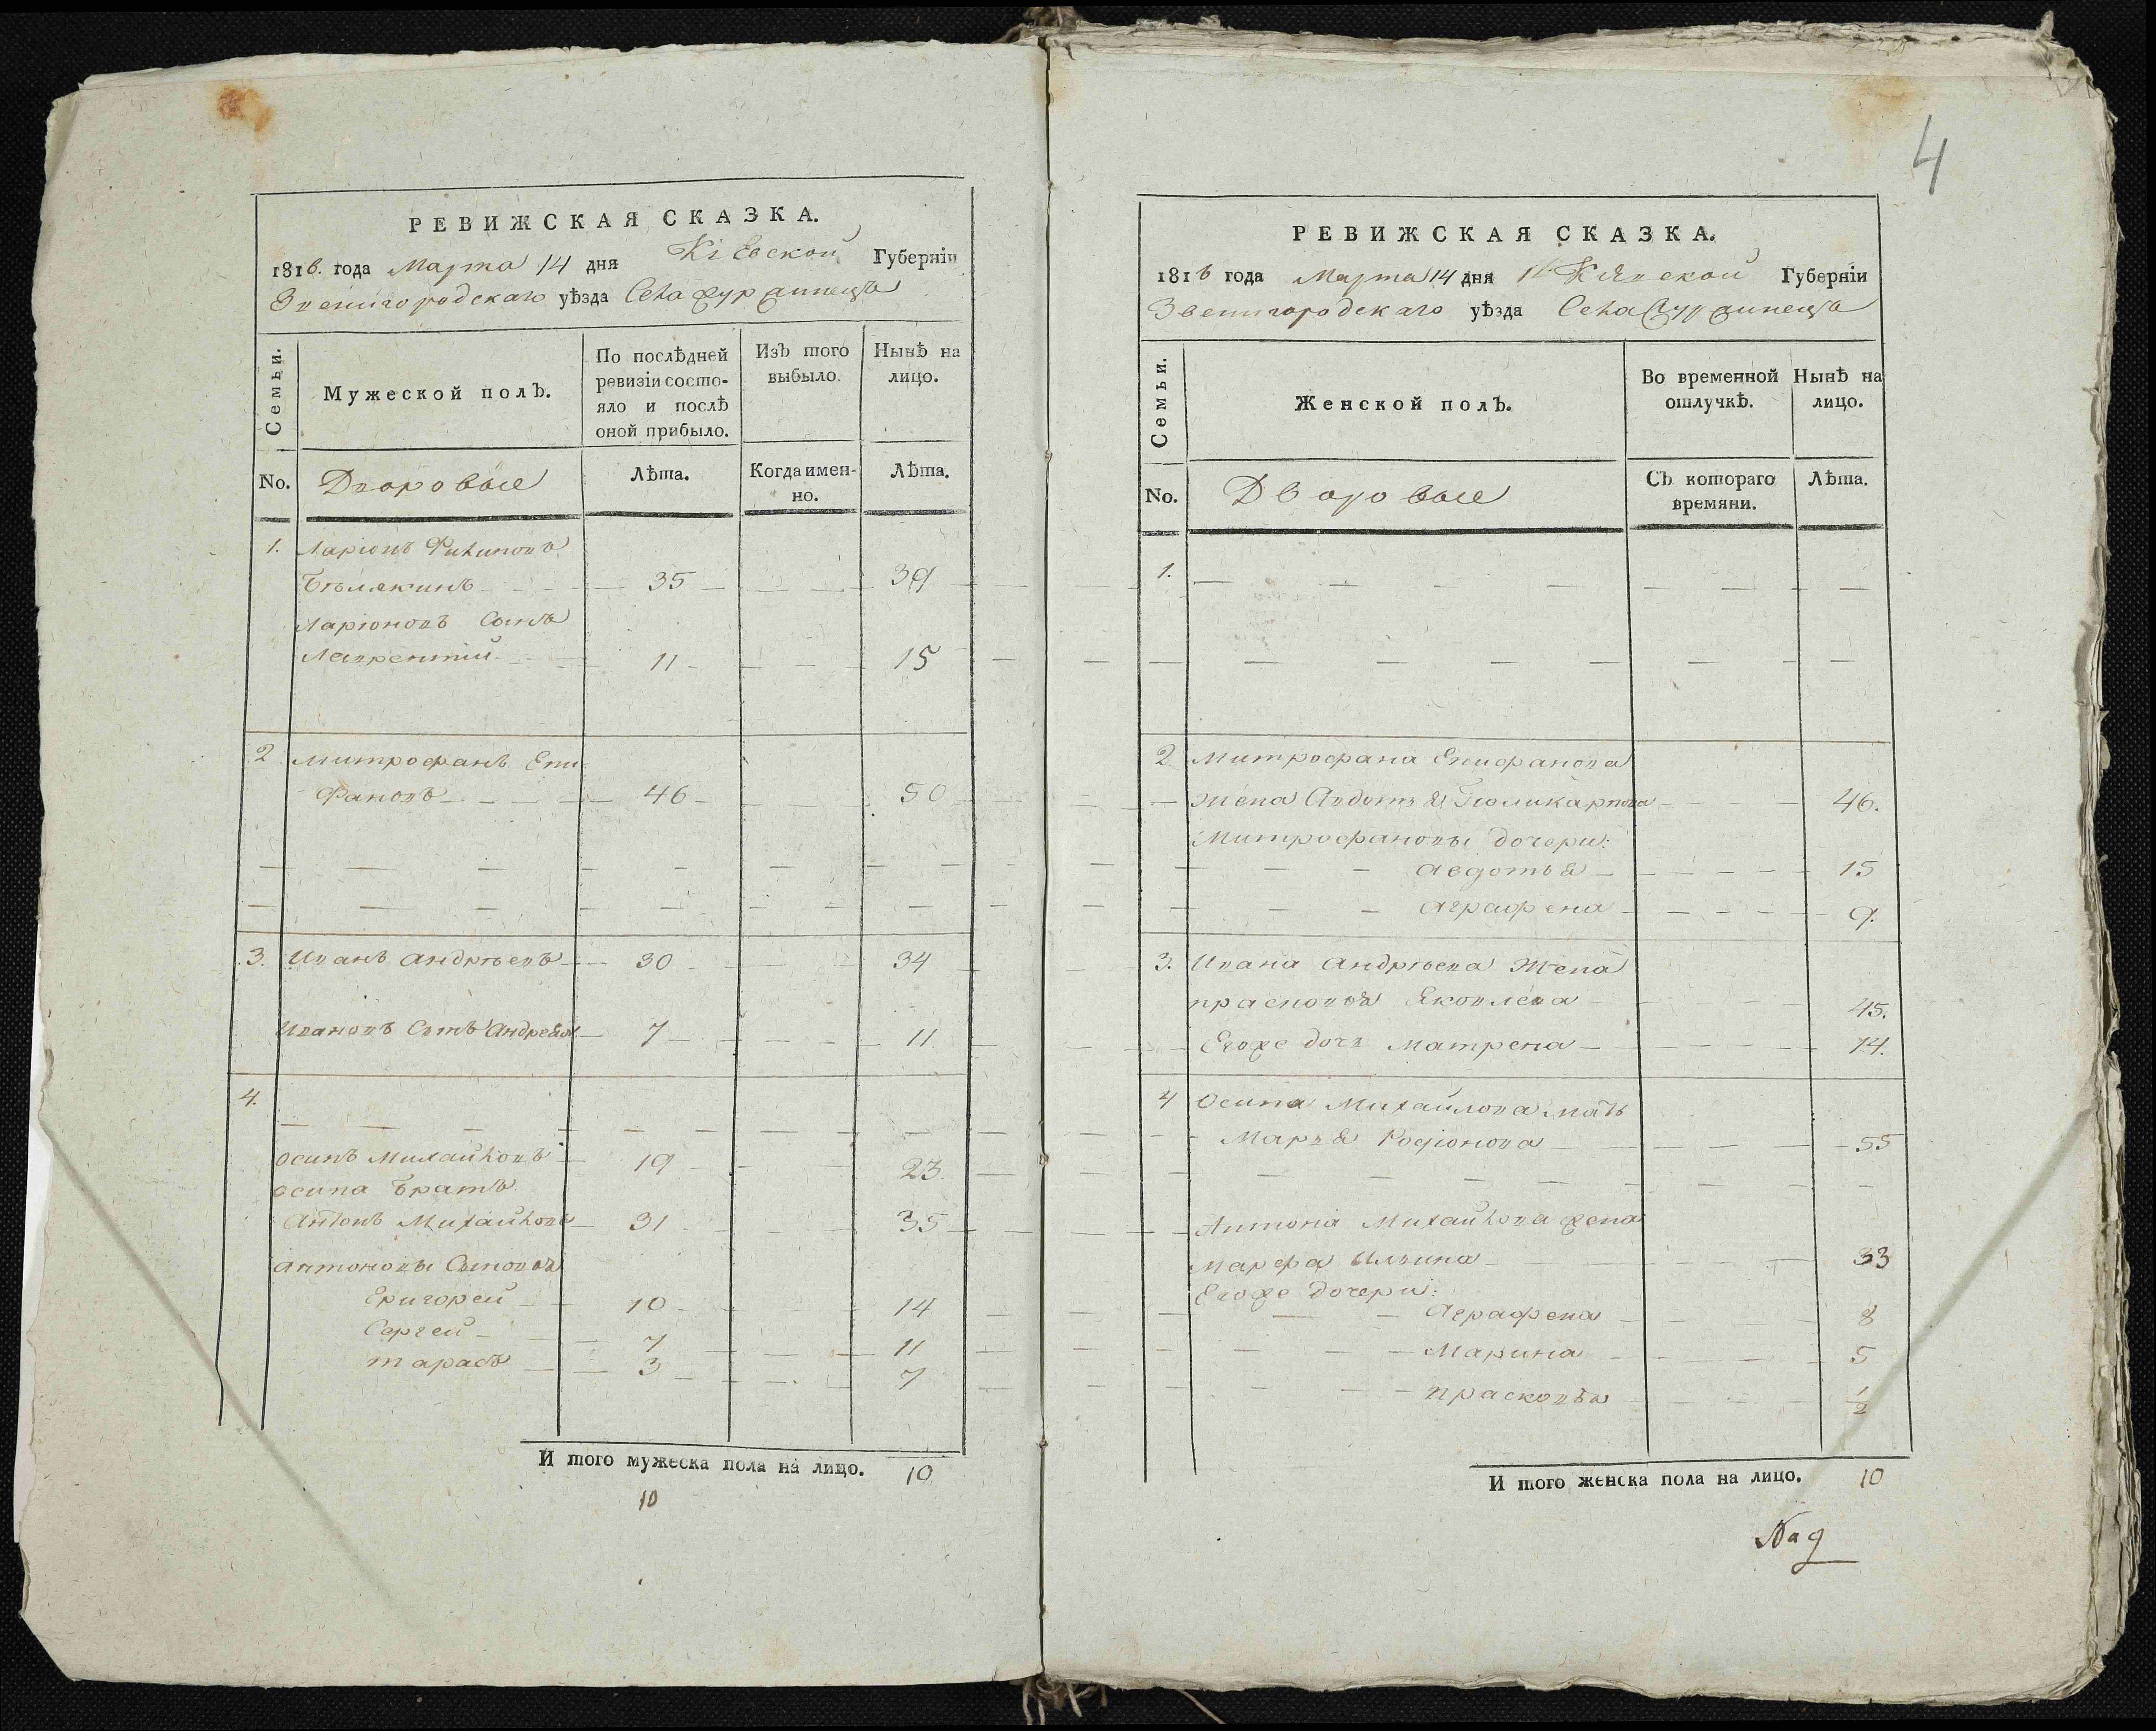 РЕВИЖСКАЯ СКАЗКА.
1816. года Марта 14 дня Кіевской Губерніи
Звенигородскаго уѣзда Села
Семьи.
Мужеской полъ.
По послѣдней ревизіи состо-
яло и послѣ
оной прибыло.
Изъ того
выбыло.
Нынѣ на
лицо.
No. Дворовые Лѣта. Когда имен-
но. Лѣта.
1. Ларіонъ Филиповъ
Бѣлякинъ 35 39
Ларіоновъ Сынъ
Лаврентій 11 15
2 Митрофанъ Епи
фановъ 46 50
3. Иванъ Андрѣевъ 30 34
Ивановъ Сынъ Андреян 7 11
4.
Осипъ Михайловъ 19 23
Осипа Братъ
Антонъ Михайловъ 31 35
Антоновы Сыновья
Григорей 10 14
Сергей 7 11
Тарасъ 3 7
И того мужеска пола на лицо. 10
10
4
РЕВИЖСКАЯ СКАЗКА.
1816 года Марта 14 дня Кіевской Губерніи
Звенигородскаго уѣзда Села
Семьи.
Женской полъ.
Во временной
отлучкѣ.
Нынѣ на
лицо.
No. Дворовые Съ котораго
времяни. Лѣта.
1.
2 Митрофана Епифанова
жена Авдотья Поликарпова 46.
Митрофановы дочери:
Авдотья 15
Аграфена 9.
3. Ивана Андрѣева Жена
Прасковья Яковлева 45.
Егоже дочь Матрена 14.
4 Осипа Михайлова мать
Марья Родіонова 55
Антона Михайлова жена
Марфа Ильина 33
Егоже дочери:
Аграфена 8
Марина 5
Прасковья 1/2
И того женска пола на лицо. 10